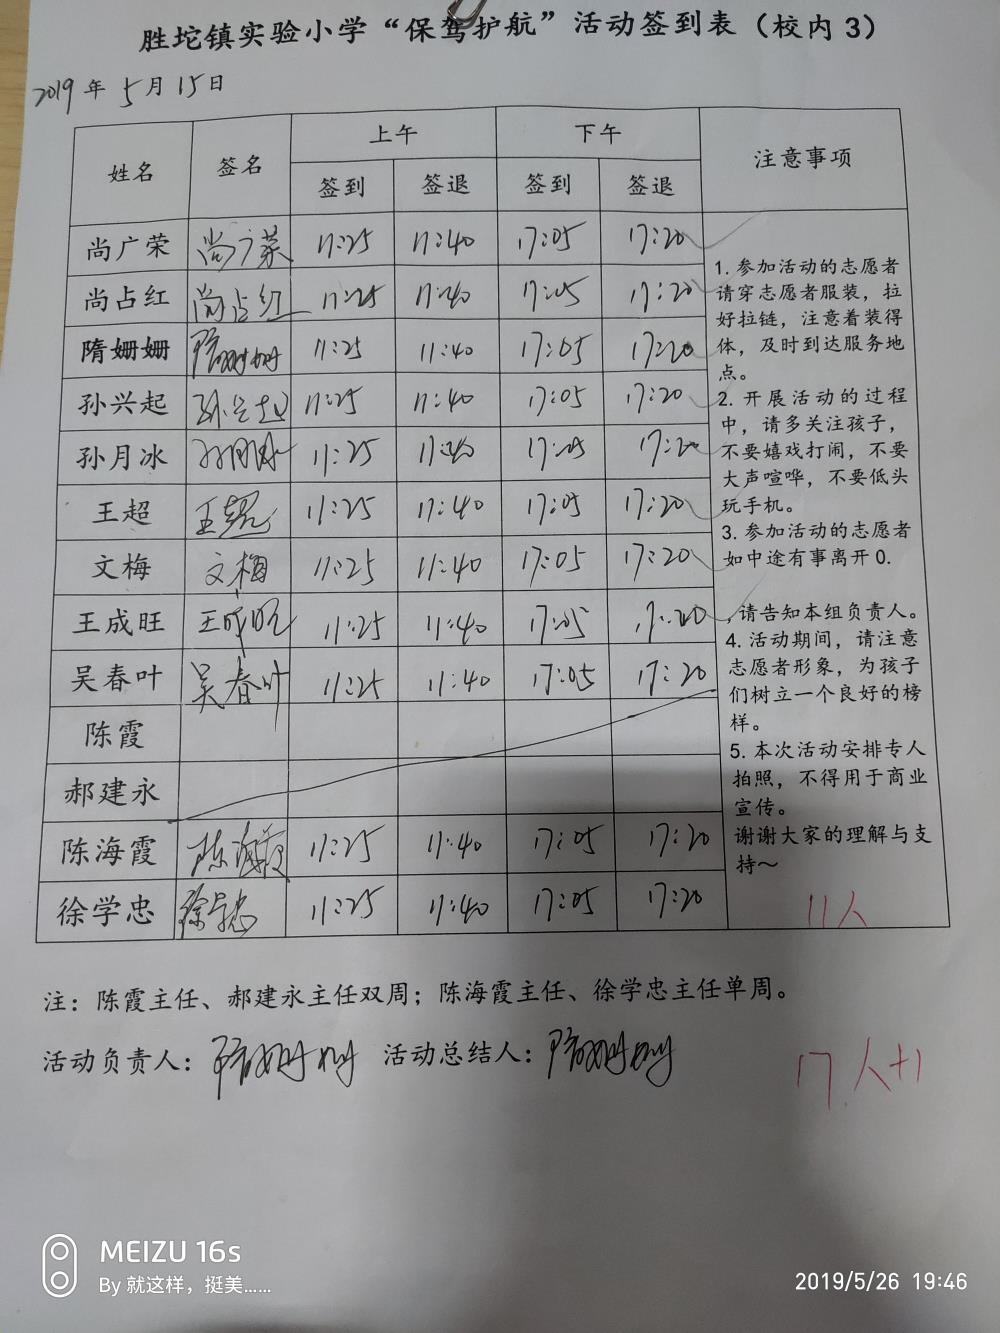 胜坨镇实验小学“保驾护航”活动签到表（校内3）
2019年5月15日
姓名 签名 上午 下午 注意事项
签到 签退 签到 签退
尚广荣 尚广荣 11:25 11:40 17:05 17:20
尚占红 尚占红 11:25 11:40 17:05 17:20
隋姗姗 隋姗姗 11:25 11:40 17:05 17:20
孙兴起 孙兴起 11:25 11:40 17:05 17:20
孙月冰 孙月冰 11:25 11:40 17:05 17:20
王超 王超 11:25 11:40 17:05 17:20
文梅 文梅 11:25 11:40 17:05 17:20
王成旺 王成旺 11:25 11:40 17:05 17:20
吴春叶 吴春叶 11:25 11:40 17:05 17:20
陈霞
郝建永
陈海霞 陈海霞 11:25 11:40 17:05 17:20
徐学忠 徐学忠 11:25 11:40 17:05 17:20
1. 参加活动的志愿者
请穿志愿者服装，拉
好拉链，注意着装得
体，及时到达服务地
点。
2. 开展活动的过程
中，请多关注孩子，
不要嬉戏打闹，不要
大声喧哗，不要低头
玩手机。
3. 参加活动的志愿者
如中途有事离开0.
，请告知本组负责人。
4. 活动期间，请注意
志愿者形象，为孩子
们树立一个良好的榜
样。
5. 本次活动安排专人
拍照，不得用于商业
宣传。
谢谢大家的理解与支
持～
11人
注：陈霞主任、郝建永主任双周；陈海霞主任、徐学忠主任单周。
活动负责人：隋姗姗 活动总结人：隋姗姗
17人+1
MEIZU 16s
By 就这样，挺美……
2019/5/26 19:46